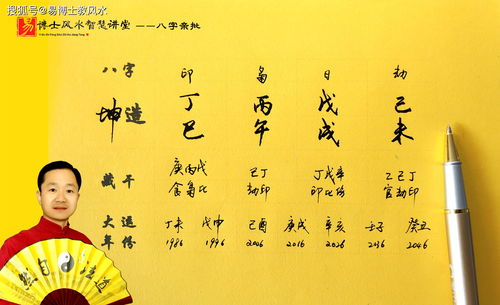 搜狐号@易博士教风水
易 博士风水智慧讲堂 ——八字亲批
八字 印 枭 日 劫
坤造 丁 丙 戊 己
巳 午 戌 未
藏干 庚丙戊 己丁 丁戊辛 乙己丁
食枭比 劫印 印比伤 官劫印
大运 丁未 戊申 己酉 庚戌 辛亥 壬子 癸丑
年份 1986 1996 2006 2016 2026 2036 2046
然自法道